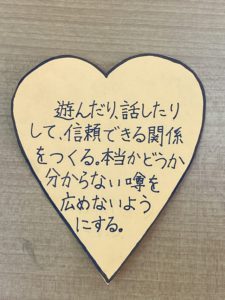 遊んだり、話したり
して、信頼できる関係
をつくる。本当かどうか
分からない噂を
広めないよう
にする。